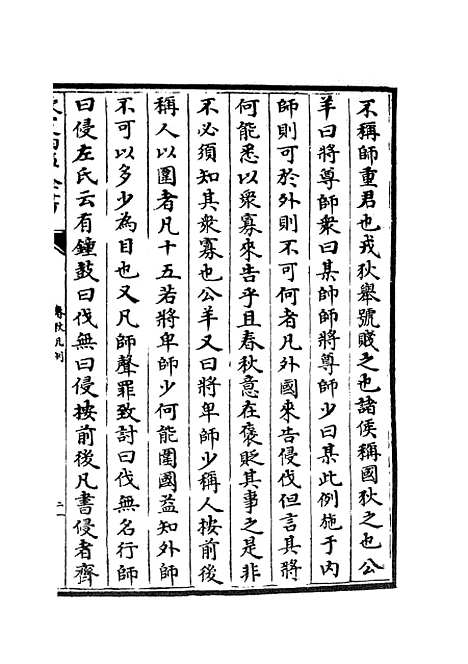 不稱師重君也戎狄舉號賤之也諸侯稱國狄之也公
羊曰將尊師衆曰某帥師將尊師少曰某此例施于内
師則可於外則不可何者凡外國來告侵伐但言其將
何能悉以衆寡來告乎且春秋意在褒貶其事之是非
不必須知其衆寡也公羊又曰將卑師少稱人按前後
稱人以圍者凡十五若將卑師少何能圍國益知外師
不可以多少為目也又凡師聲罪致討曰伐無名行師
曰侵左氏云有鐘鼓曰伐無曰侵按前後凡書侵者齊
春秋凡例
二